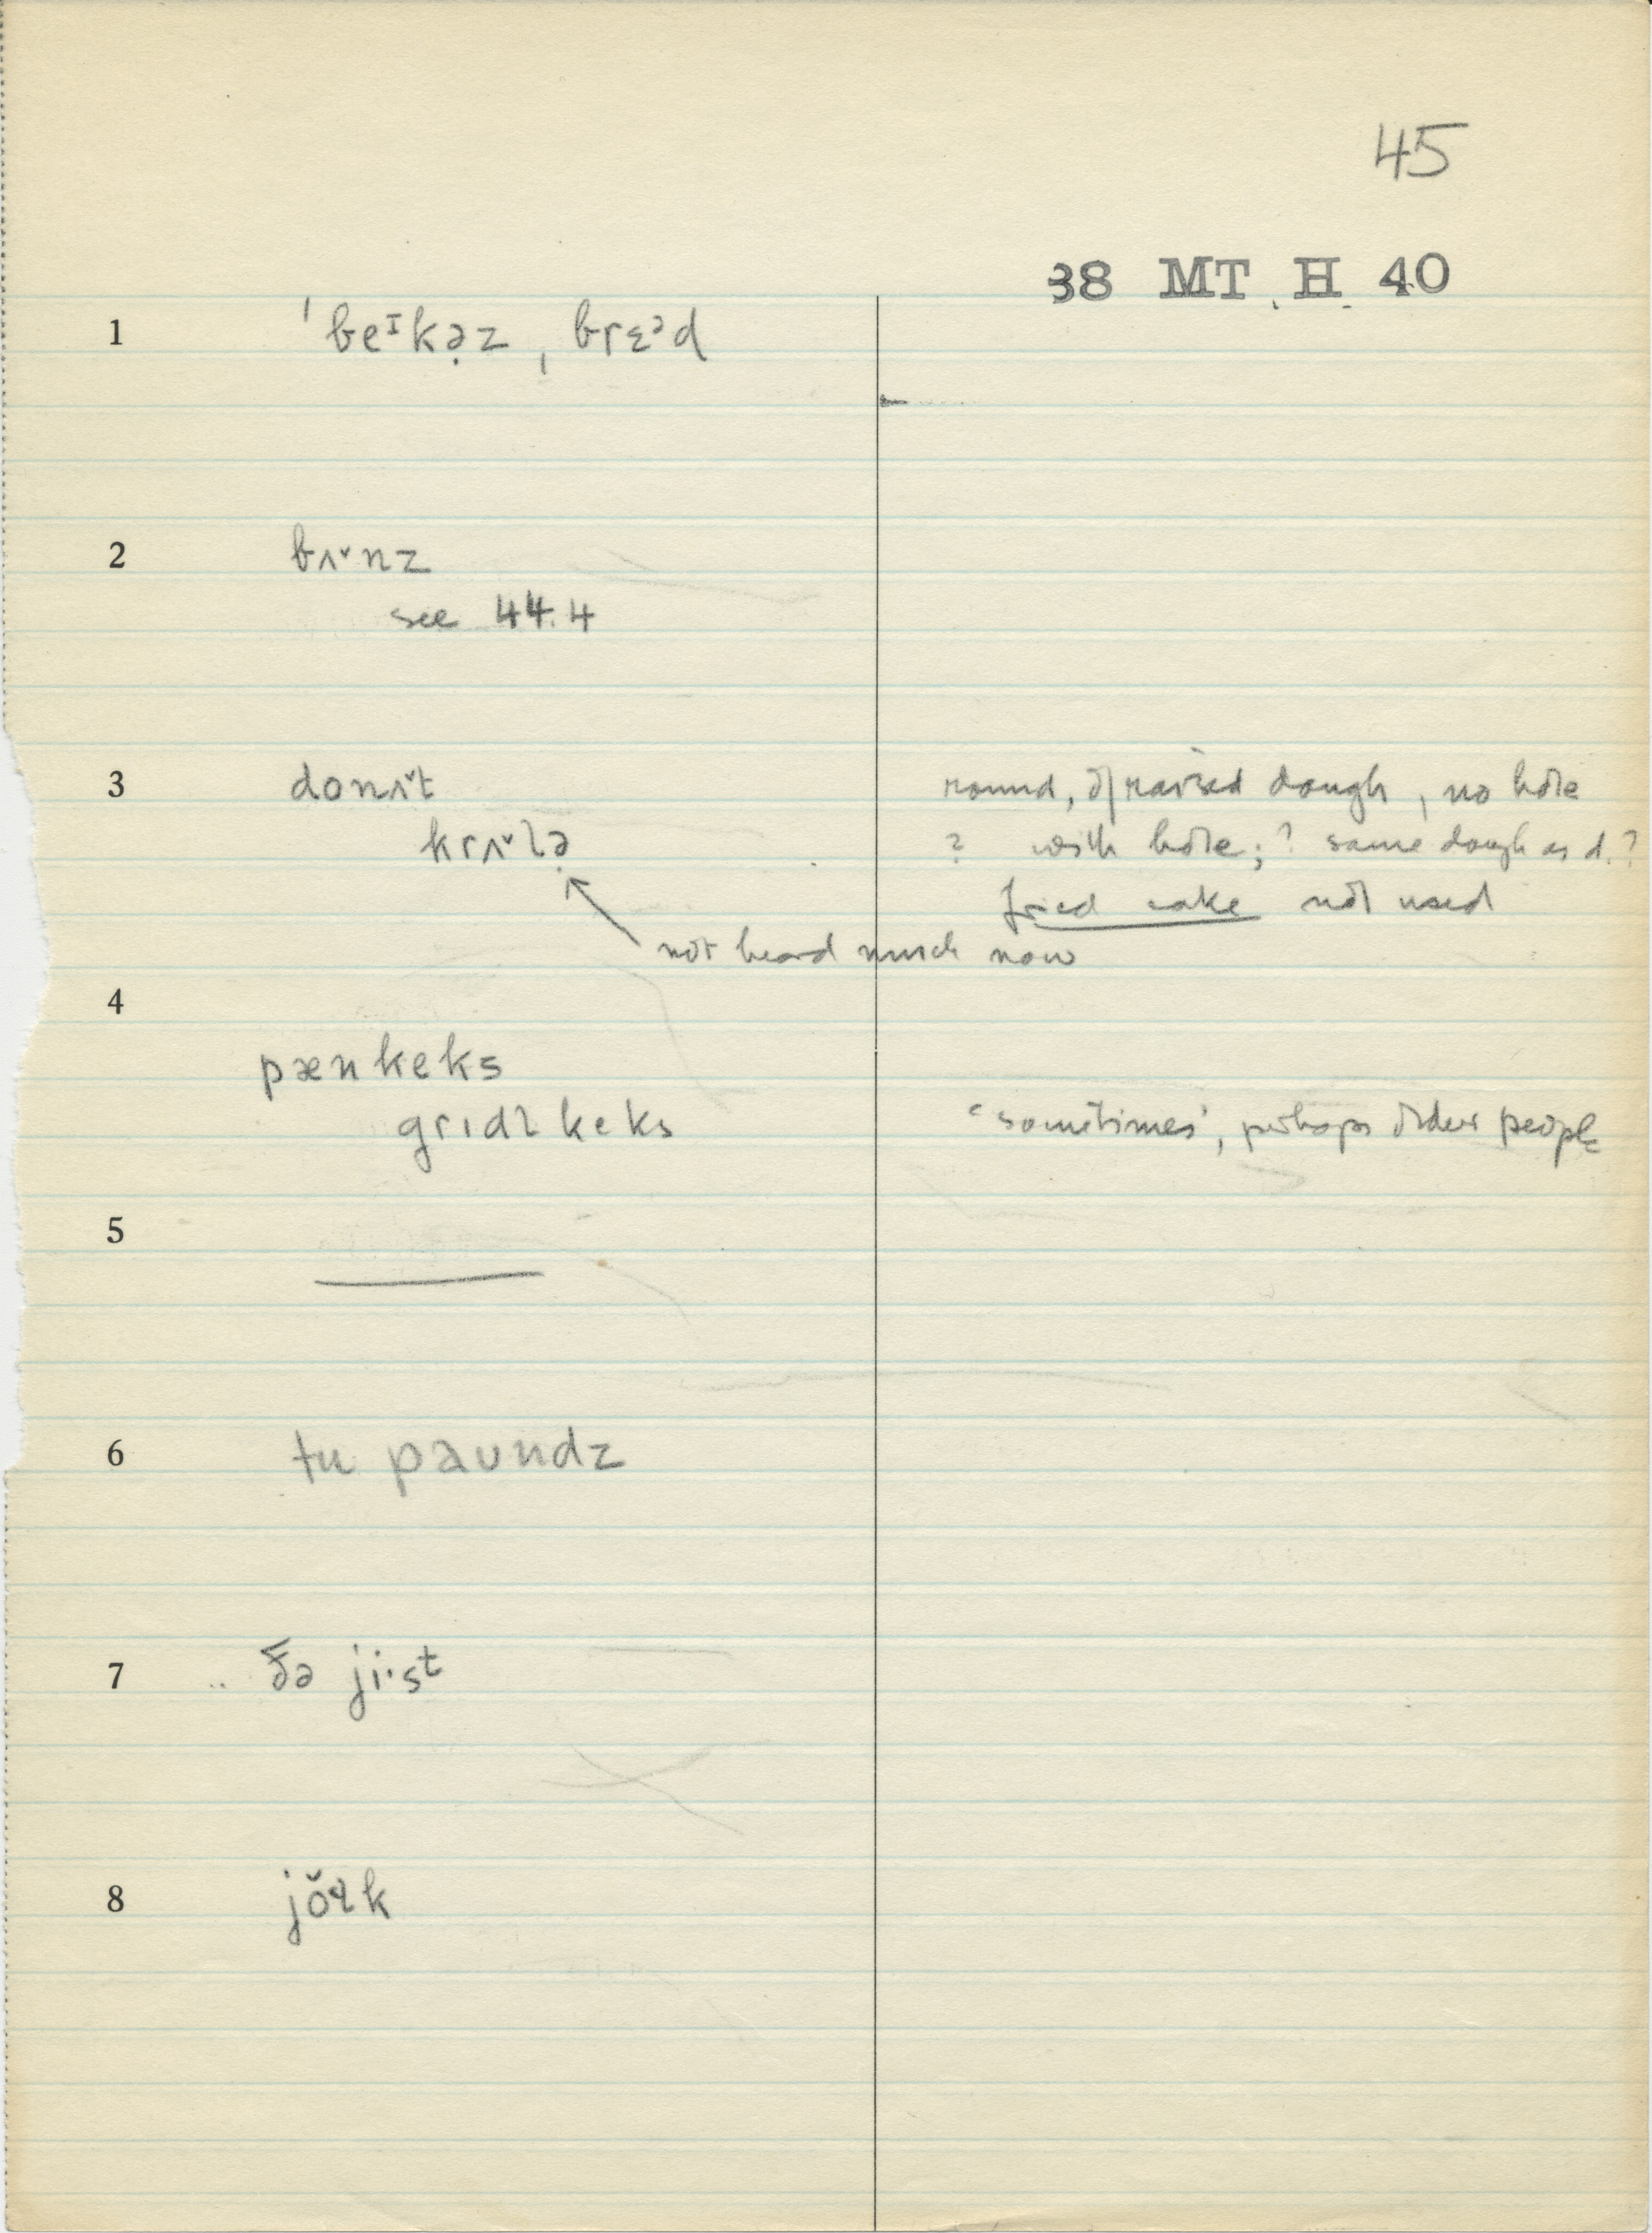 45
38 MT H 40
1 ˈbeᶦkə̣z ˌbrɛᵊd
2 bʌ˅nz
see 44.4
3 donʌ˅t round, of raised dough, no hole
krʌ˅lə̣ ? with hole; ? same dough as d.?
fried cake not used
not heard much now
4
pænkeks
grɪdl keks 'sometimes', perhaps older people
5
6 tu paundz
7 .. ðə ji·st
8 jŏɚk